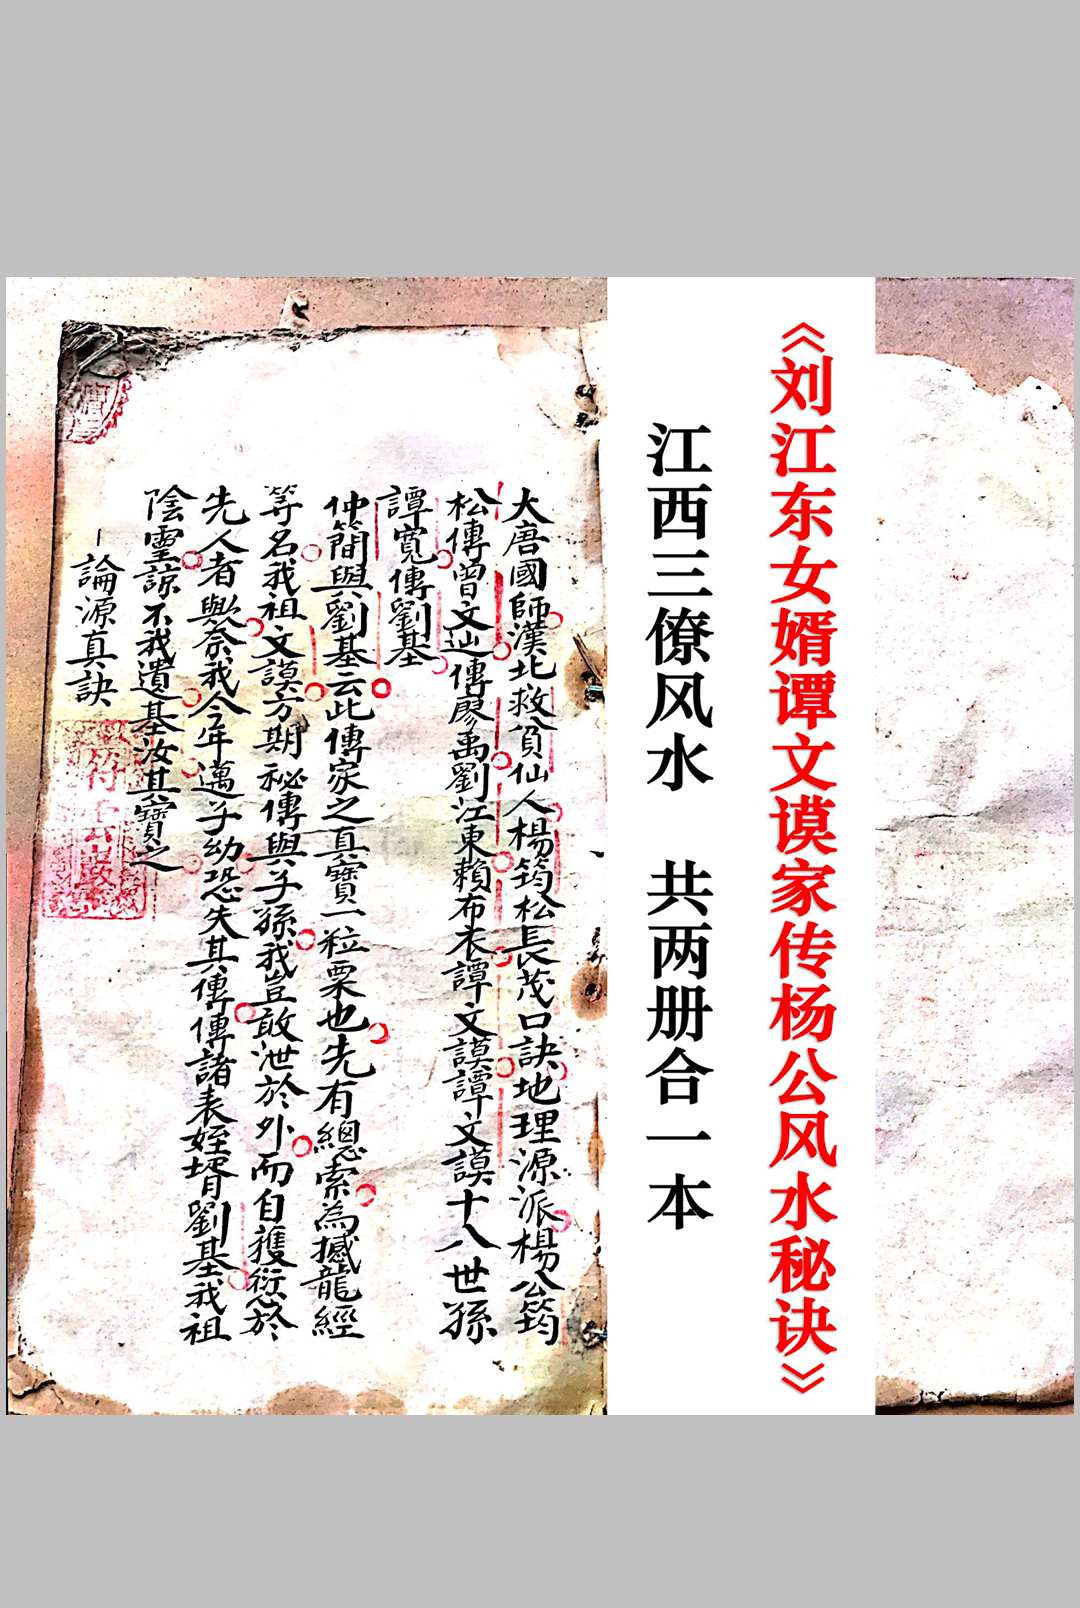 《刘江东女婿谭文谟家传杨公风水秘诀》
江西三僚风水 共两册合一本
大唐國師漢北救貧仙人楊筠松長茂口訣地理源派楊公筠
松傳曾文辿傳廖禹劉江東賴布衣譚文謨譚文謨十八世孫
譚寬傳劉基
仲簡與劉基云此傳家之真寶一粒粟也先有總索為撼龍經
等名我祖文謨方期秘傳與子孫我豈敢泄於外而自獲愆於
先人者歟奈我今年邁子幼恐失其傳傳諸表姪壻劉基我祖
陰靈諒不我遺基汝其寶之
論源真訣